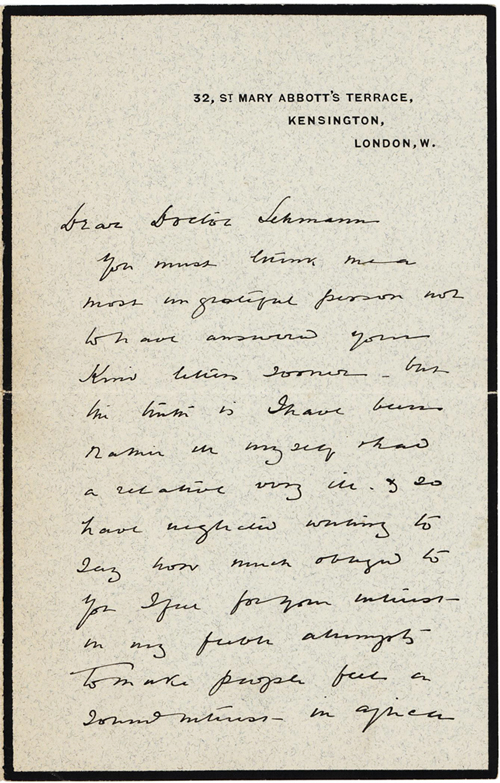 32, ST MARY ABBOTT'S TERRACE,
KENSINGTON,
LONDON, W.
Dear Doctor Lehmann
You must think me a
most ungrateful person not
to have answered your
kind letters sooner - but
the truth is I have been
rather ill myself & had
a relative very ill. & so
have neglected writing to
say how much obliged to
you I feel for your interest
in my feeble attempts
to make people feel a
sound interest in Africa